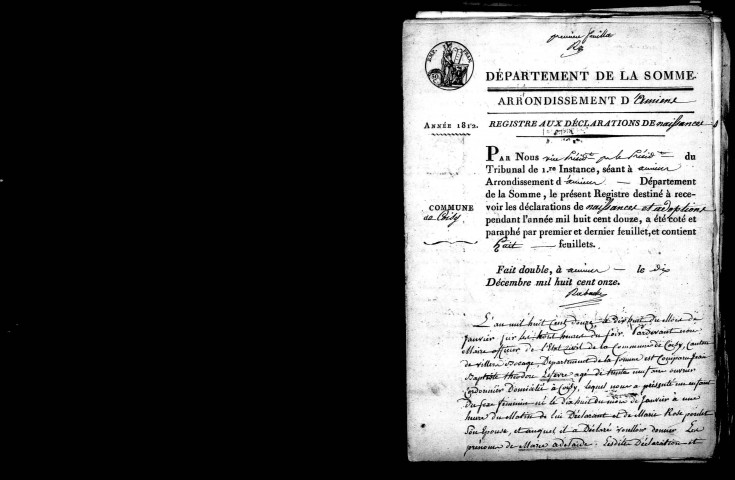 premier feuillet
DÉPARTEMENT DE LA SOMME.
ARRONDISSEMENT D'amiens
ANNÉE 1812.
REGISTRE AUX DÉCLARATIONS DE naissances
PAR NOUS vice présidt du
Tribunal de 1.re Instance, séant à amiens
Arrondissement d'amiens — Département
de la Somme, le présent Registre destiné à rece-
COMMUNE
de Coisy
voir les déclarations de naissances et adoptions
pendant l'année mil huit cent douze, a été coté et
paraphé par premier et dernier feuillet, et contient
huit — feuillets.
Fait double, à amiens — le dix
Décembre mil huit cent onze.
L'an mil huit Cent douze, le dix huit du Mois de
Janvier sur les heures du soir, Pardevant nous
Maire officier de l'Etat civil de la Commune de Coisy, Canton
de villers Bocage, Département de la Somme est Comparu Jean
Baptiste theodore Lefevre agé de trente neuf ans ouvrier
Cordonnier Domicilié à Coisy, lequel nous a présenté un enfant
du sexe féminin né le dix huit du mois de Janvier à une
heure du Matin de lui Déclarant et de Marie Rose poulet
son Epouse, et auquel il a Déclaré vouloir donner Les
prénoms de Marie adelaide. Lesdite Déclaration et